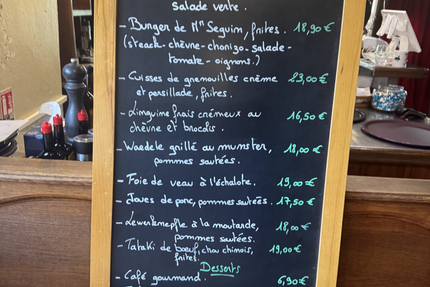 salade verte.
- Burger de Mr Seguin, frites. 18,90 €
(steack - chèvre - chorizo - salade -
tomate - oignons.)
- Cuisses de grenouilles crème 23,00 €
et persillade, frites.
- Linguine frais crémeux au 16,50 €
chèvre et brocolis.
- Waedele grillé au munster, 18,00 €
pommes sautées.
- Foie de veau à l'échalote. 19,00 €
- Joues de porc, pommes sautées. 17,50 €
- Lewerknepfle à la moutarde, 18,00 €
pommes sautées.
- Tataki de bœuf, chou chinois, 19,00 €
frites.
Desserts
- Café gourmand. 6,90 €